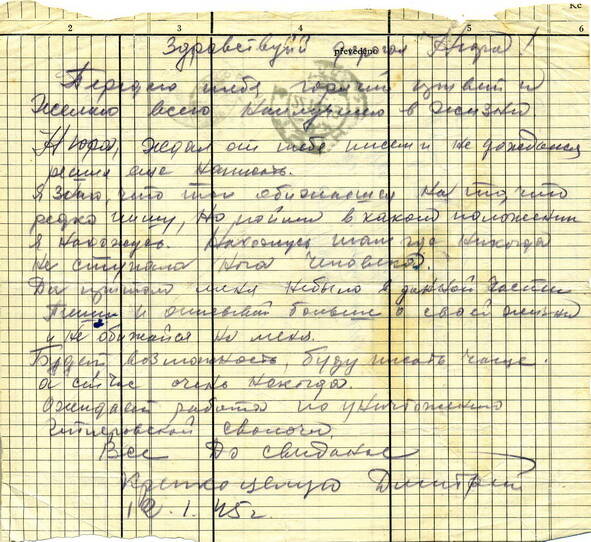 Ке
2 3 4 5 6
převedeno
Здравствуй дорогая Нюра!
Передаю тебе горячий привет и
желаю всего наилучшего в жизни
Нюра, ждал от тебя писем и не дождался
решил еще написать.
Я знаю, что ты обижаешся на то, что
редко пишу, но пойми в каком положении
я нахожусь. Нахожусь там где никогда
не ступала нога человека.
Да притом меня небыло в данной части
Пиши и описывай больше о своей жизни
и не обижайся на меня.
Будет возможность, буду писать чаще.
а сейчас очень некогда.
Ожидает работа по уничтожению
гитлеровской сволочи.
Все До свиданье
Крепко целую Дмитрий
12.1.45г.